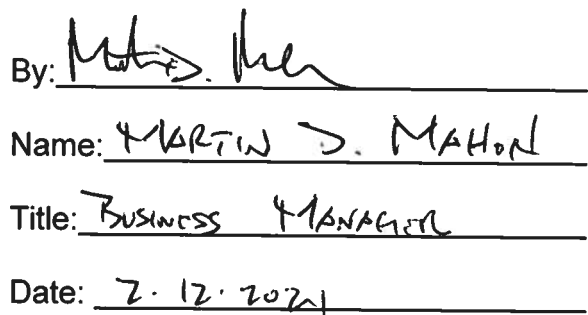 By:
Name: MARTIN D. MAHON
Title: BUSINESS MANAGER
Date: 2.12.2021